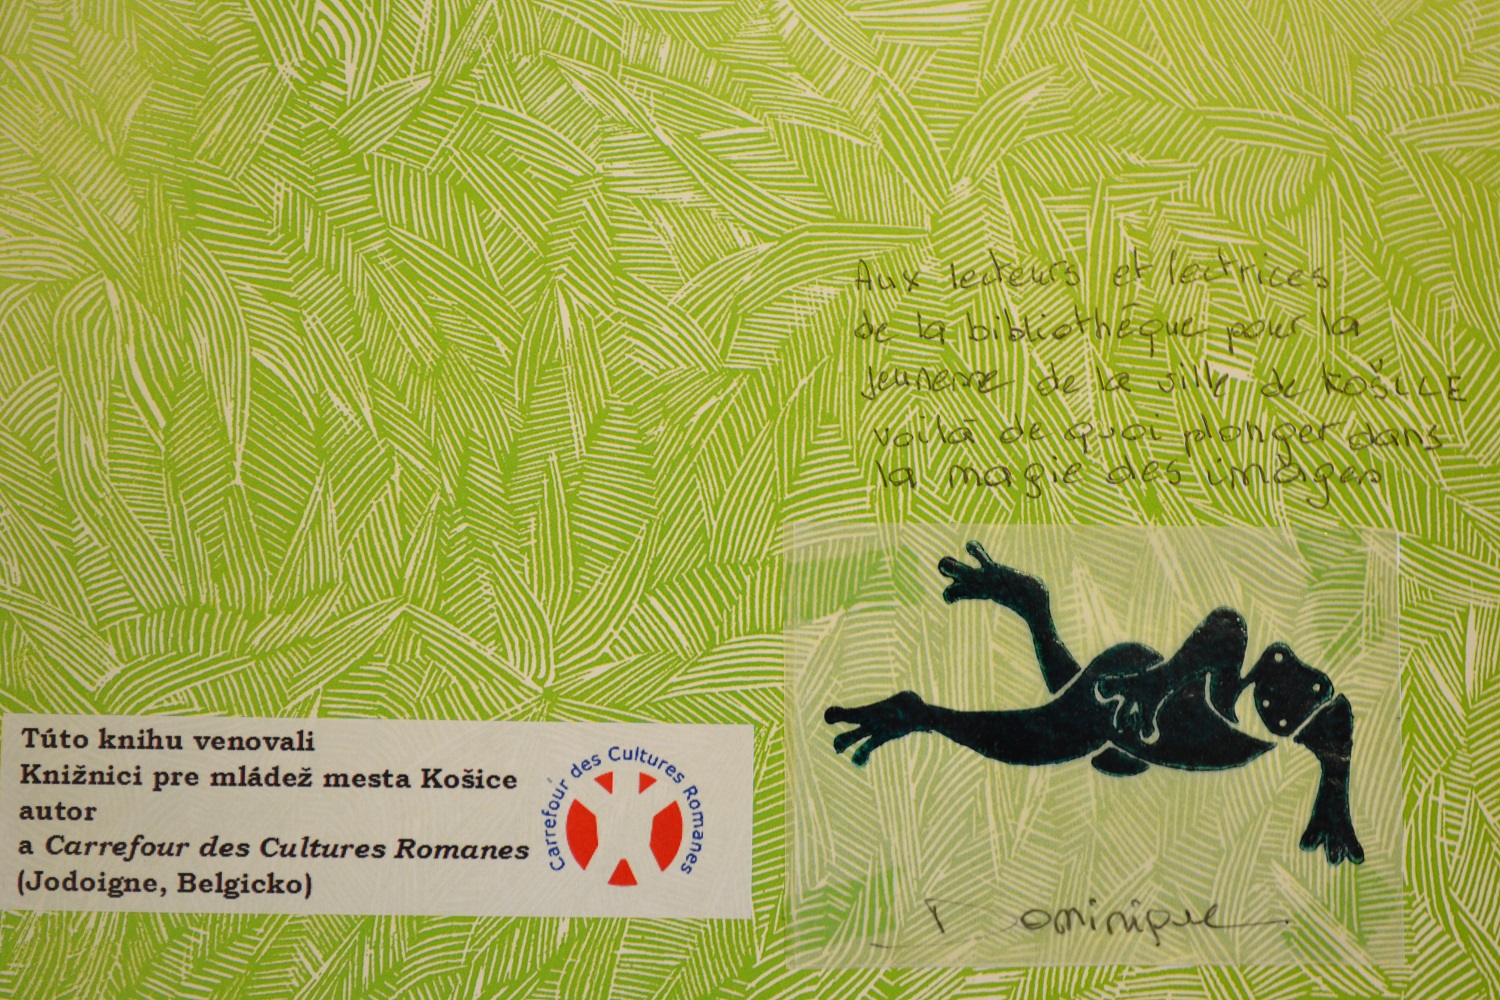 Aux lecteurs et lectrices
de la bibliothéque pour la
jeunesse de la ville de KOŠICE
voilà de quoi plonger dans
la magie des images
Dominique
Túto knihu venovali
Knižnici pre mládež mesta Košice
autor
a Carrefour des Cultures Romanes
(Jodoigne, Belgicko)
Carrefour des Cultures Romanes